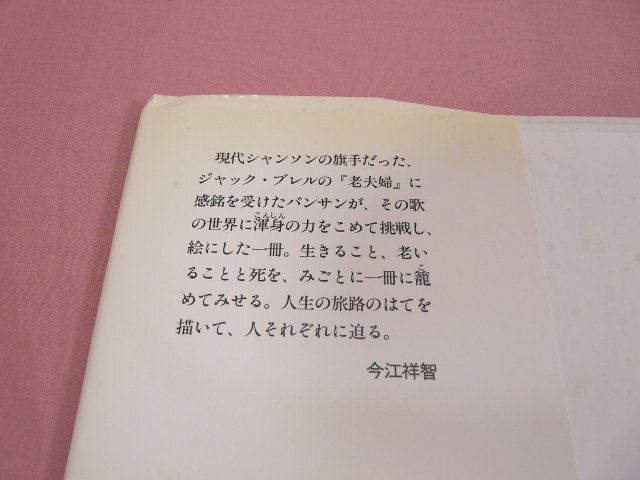 現代シャンソンの旗手だった、
ジャック・ブレルの『老夫婦』に
感銘を受けたバンサンが、その歌
の世界に渾身の力をこめて挑戦し、
こんしん
絵にした一冊。生きること、老い
ることと死を、みごとに一冊に籠
こ
めてみせる。人生の旅路のはてを
描いて、人それぞれに迫る。
今江祥智